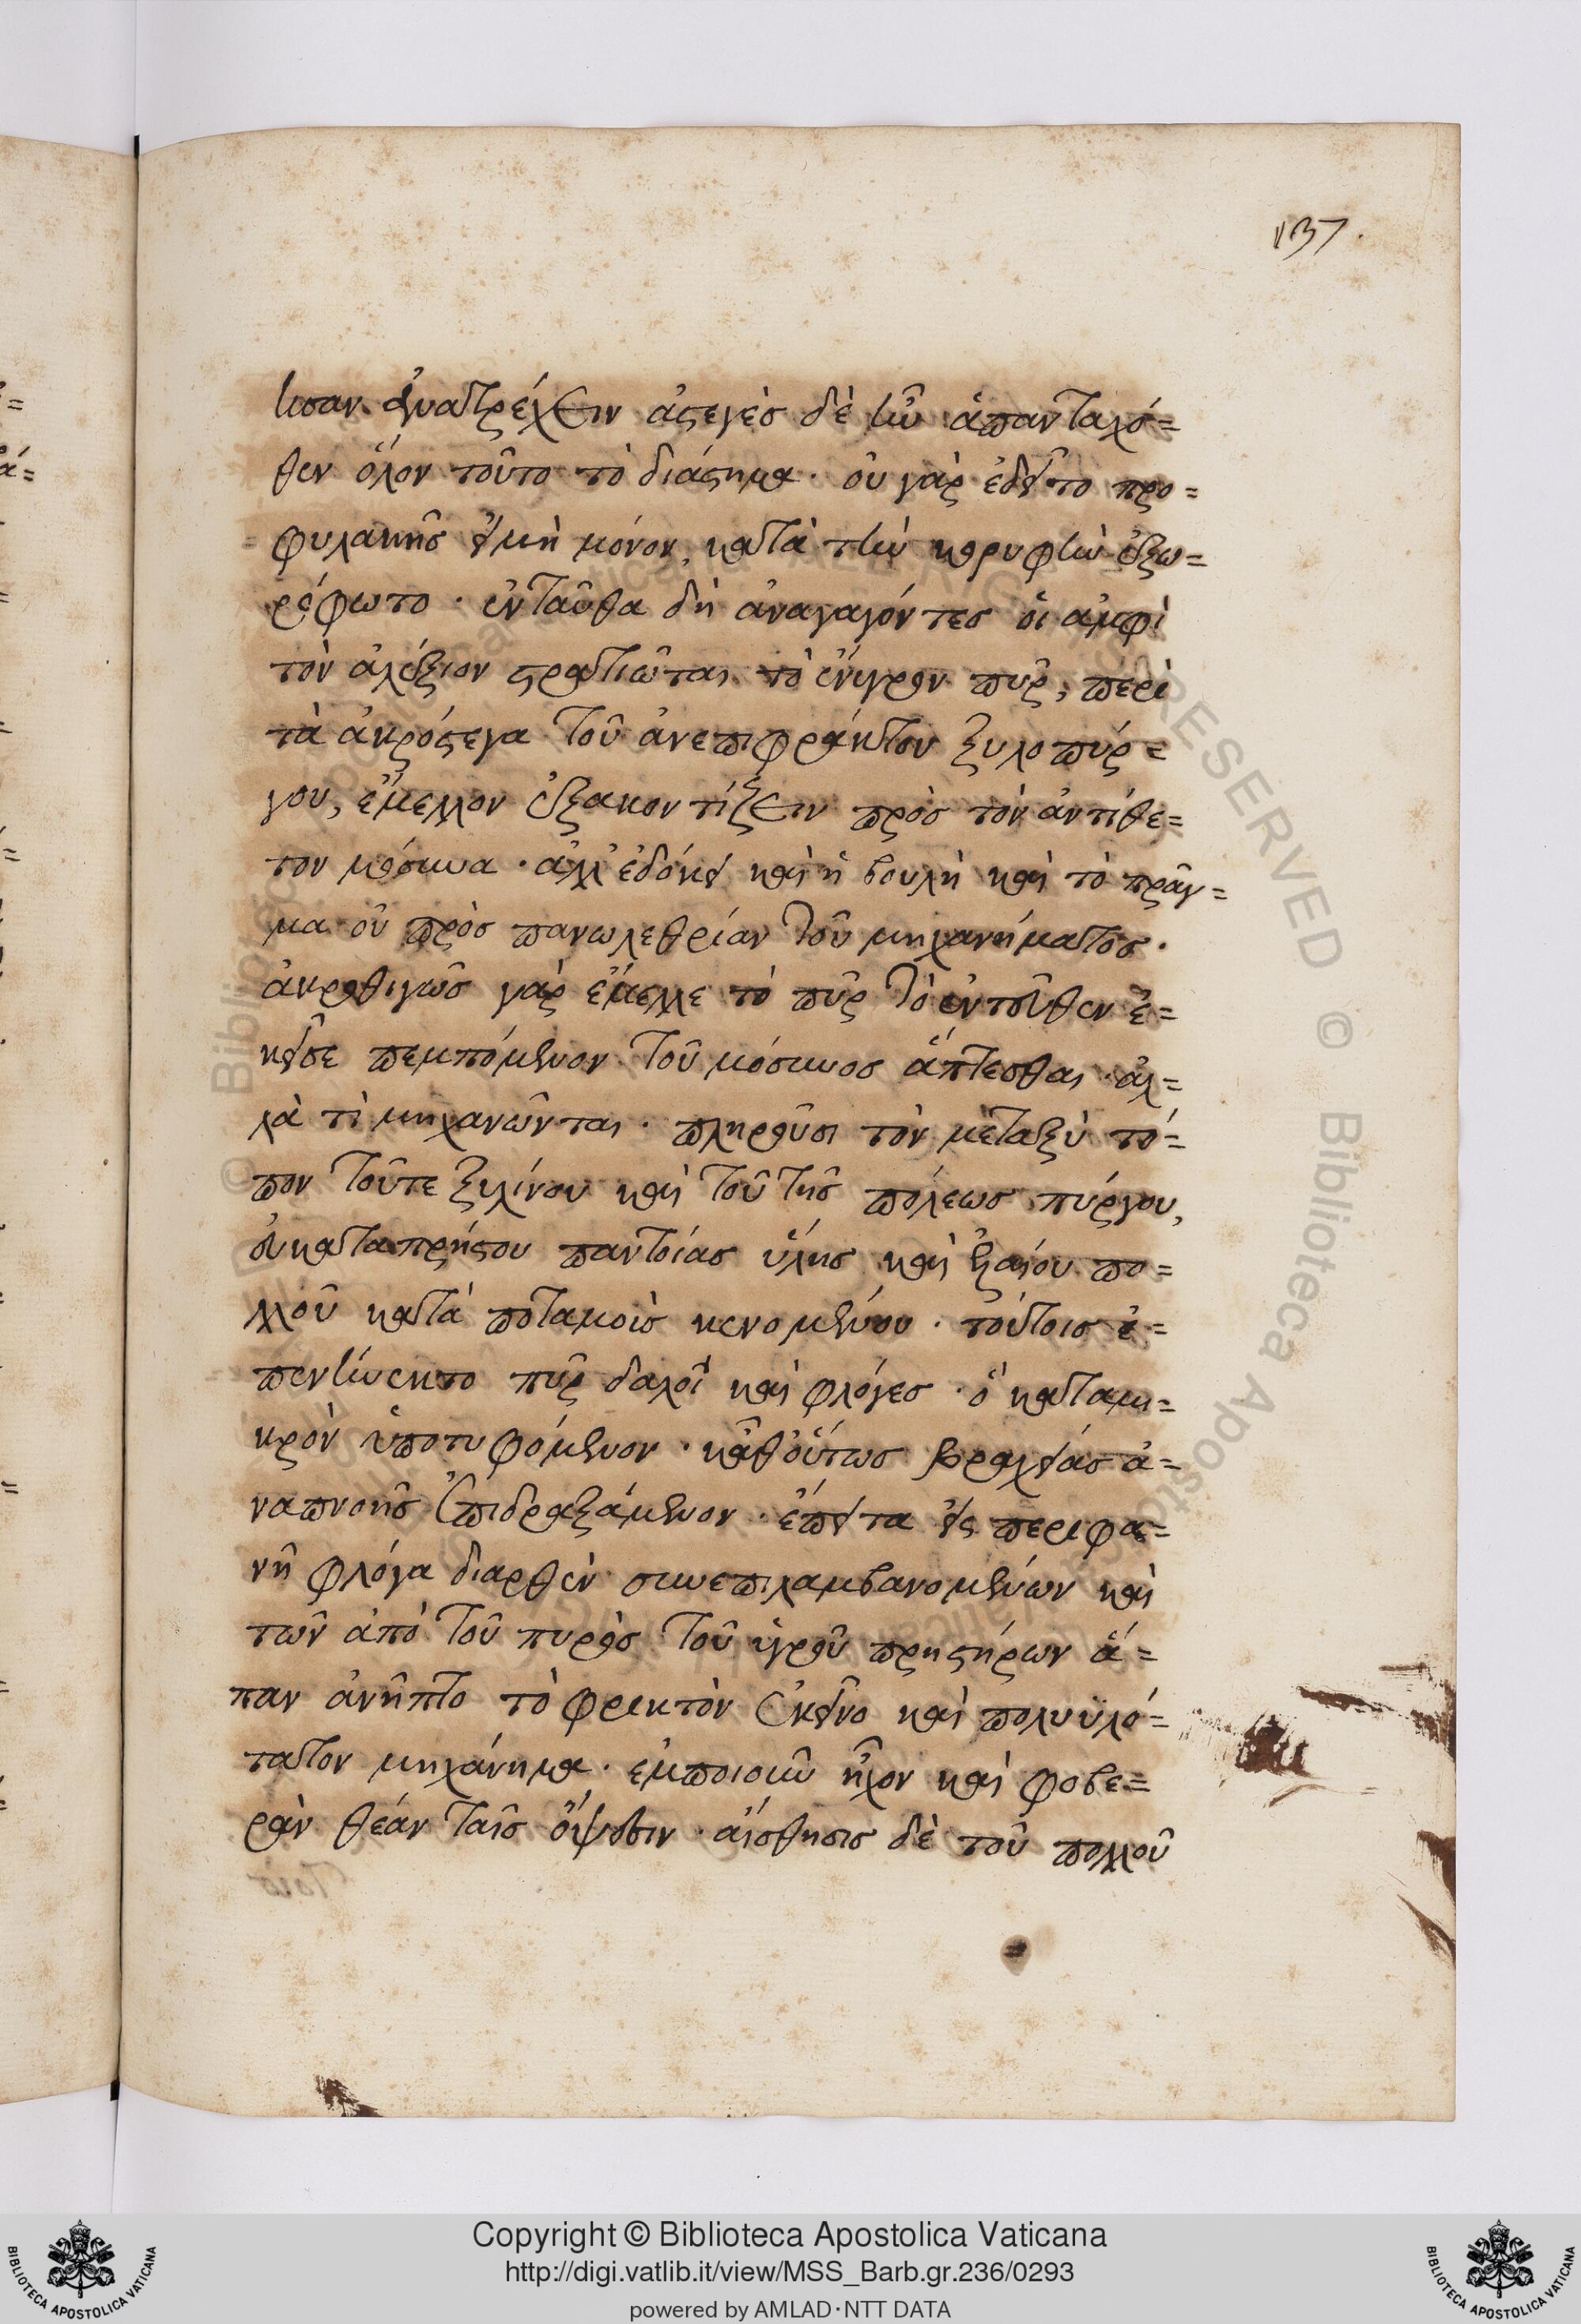 137.
ωσαν ἀνατρέχειν ἀστεγὲς δὲ ἦν ἁπανταχό=
θεν ὅλον τοῦτο τὸ διάστημα. οὐ γὰρ ἐδεῖτο προ=
φυλακῆς εἰμὴ μόνον, κατὰ τὴν κορυφὴν ἐξω=
ρόφωτο. ἐνταῦθα δὴ ἀναγαγόντες οἱ ἀμφὶ
τὸν ἀλέξιον στρατιῶται τὸ ἔνυγρον πῦρ, περὶ
τὰ ἀκρόστεγα τοῦ ἀνεπιφράκτου ξυλοπύρ=
γου, ἔμελλον ἐξακοντίζειν πρὸς τὸν ἀντίθε=
τον μόσυνα. ἀλλ' ἐδόκει καὶ ἡ βουλὴ καὶ τὸ πρᾶγ=
μα οὐ πρὸς πανωλεθρίαν τοῦ μηχανήματος.
ἀκροθιγῶς γὰρ ἔμελλε τὸ πῦρ τὸ ἐντεῦθεν ἐ=
κεῖσε πεμπόμενον τοῦ μόσυνος ἅπτεσθαι. ἀλ=
λὰ τί μηχανῶνται. πληροῦσι τὸν μεταξὺ τό=
πον τοῦτε ξυλίνου καὶ τοῦ τῆς πόλεως πύργου,
εὐκαταπρήστου παντοίας ὕλης καὶ ἐλαίου πο=
λλοῦ κατὰ ποταμοὺς κενομένου. τούτοις ἐ=
πενήνεκτο πῦρ δαλοὶ καὶ φλόγες. ὃ καταμι=
κρὸν ὑποτυφόμενον. καθ' οὕτως βραχείας ἀ=
ναπνοῆς ἐπιδραξάμενον. ἔπειτα εἰς περιφα=
νῆ φλόγα διαρθὲν συνεπιλαμβανομένων καὶ
τῶν ἀπὸ τοῦ πυρὸς τοῦ ὑγροῦ πρηστήρων ἅ=
παν ἀνῆπτο τὸ φρικτὸν ἐκεῖνο καὶ πολυυλό=
τατον μηχάνημα. ἐμποιοῦν ἦχον καὶ φοβε=
ρὰν θέαν ταῖς ὄψεσιν. αἴσθησις δὲ τοῦ πολλοῦ
Copyright © Biblioteca Apostolica Vaticana
http://digi.vatlib.it/view/MSS_Barb.gr.236/0293
powered by AMLAD·NTT DATA